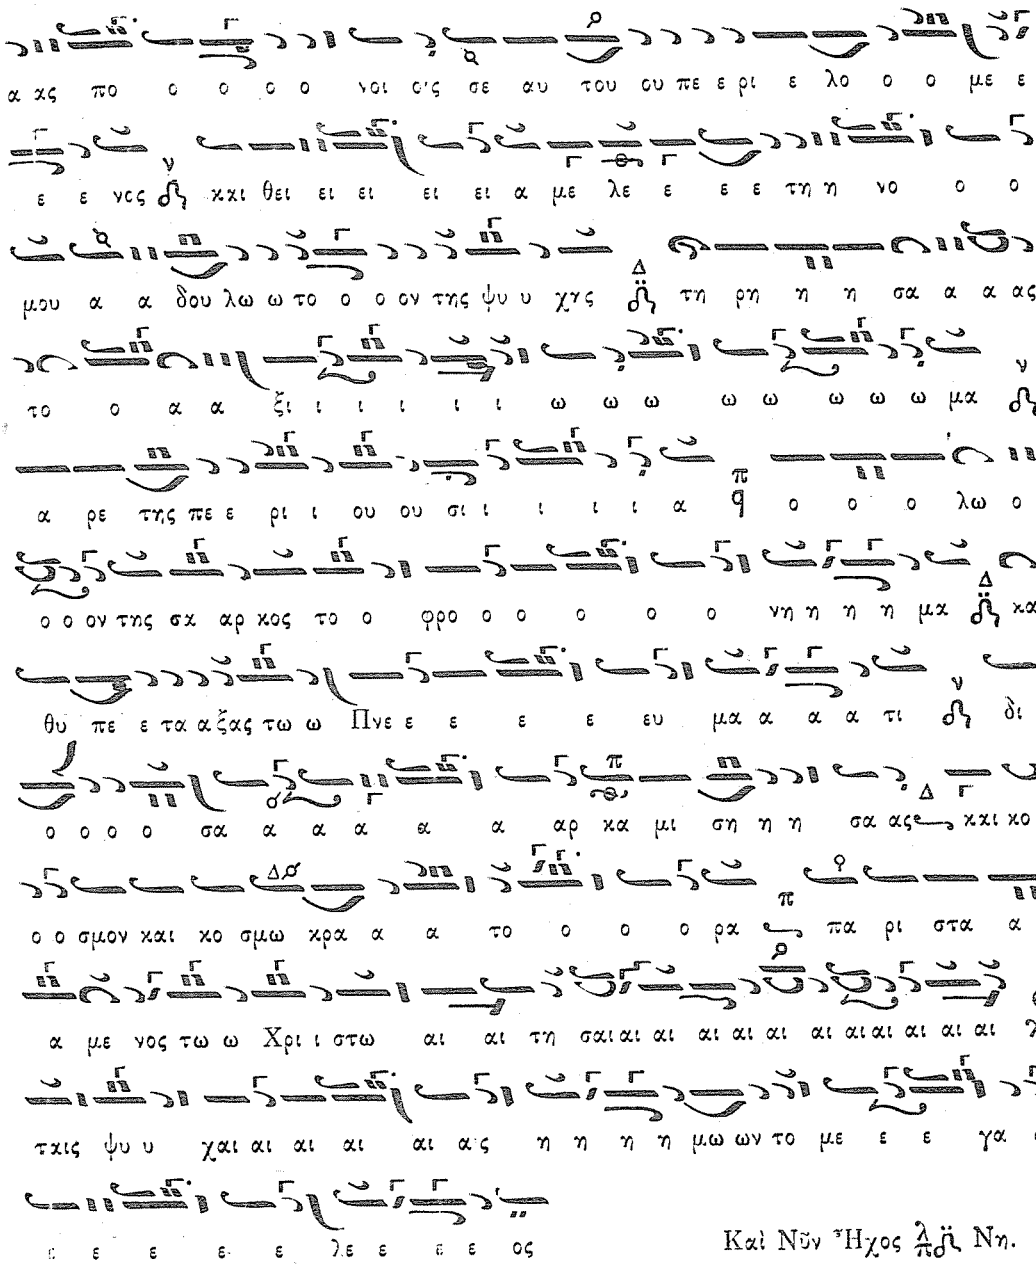 α ας πο ο ο ο ο νοι ο'ς σε αυ του ου πε ε ρι ε λο ο ο με ε
ε ε νος και θει ει ει ει ει α με λε ε ε ε τη η νο ο ο
μου α α δου λω ω το ο ο ον της ψυ υ χης τη ρη η η σα α α ας
το ο α α ξι ι ι ι ι ι ω ω ω ω ω ω ω ω μα
α ρε της πε ε ρι ι ου ου σι ι ι ι ι α ο ο ο λω ο
ο ο ον της σα αρ κος το ο φρο ο ο ο ο ο νη η η η μα κα
θυ πε ε τα α ξας τω ω Πνε ε ε ε ε ευ μα α α α τι δι
ο ο ο ο σα α α α α α αρ κα μι ση η η σα ας και κο
ο ο σμον και κο σμω κρα α α το ο ο ο ρα πα ρι στα α
α με νος τω ω Χρι ι στω αι αι τη σαι αι αι αι αι αι αι αι αι αι αι αι
ταις ψυ υ χαι αι αι αι αι α'ς η η η η μω ων το με ε ε γα
ε ε ε ε ε λε ε ε ε ος
Καὶ Νῦν Ἦχος Νη.